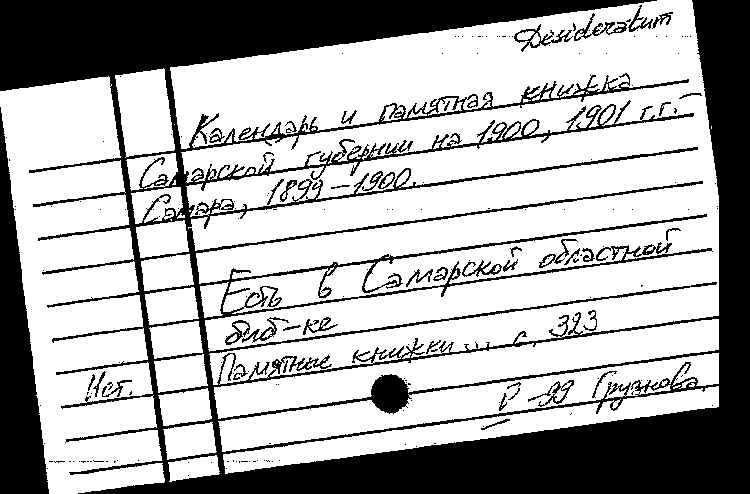 Desideratum
Календарь и памятная книжка
Самарской губернии на 1900, 1901 г.г.-
Самара, 1899-1900.
Есть в Самарской областной
биб-ке
Памятные книжки... с. 323
Ист.
Р-99 Грузнова.